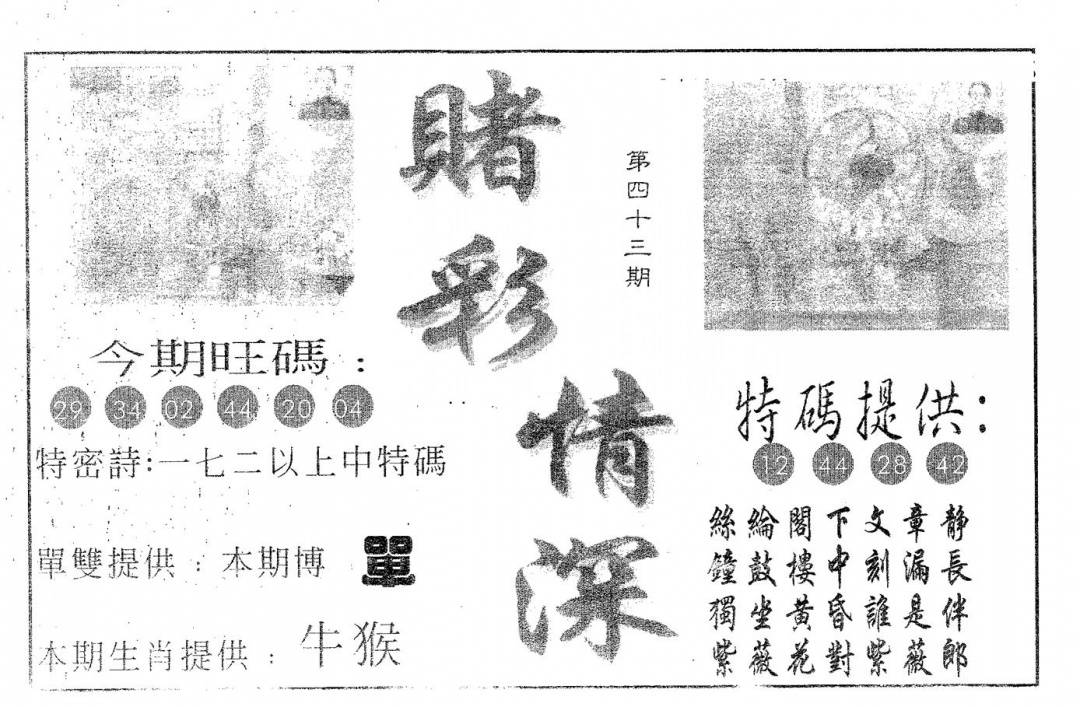 賭彩情深
第四十三期
今期旺碼：
29 34 02 44 20 04
特密詩:一七二以上中特碼
單雙提供：本期博 單
本期生肖提供：牛猴
特碼提供：
12 44 28 42
絲綸閣下文章靜
鐘鼓樓中刻漏長
獨坐黃昏誰是伴
紫薇花對紫薇郎